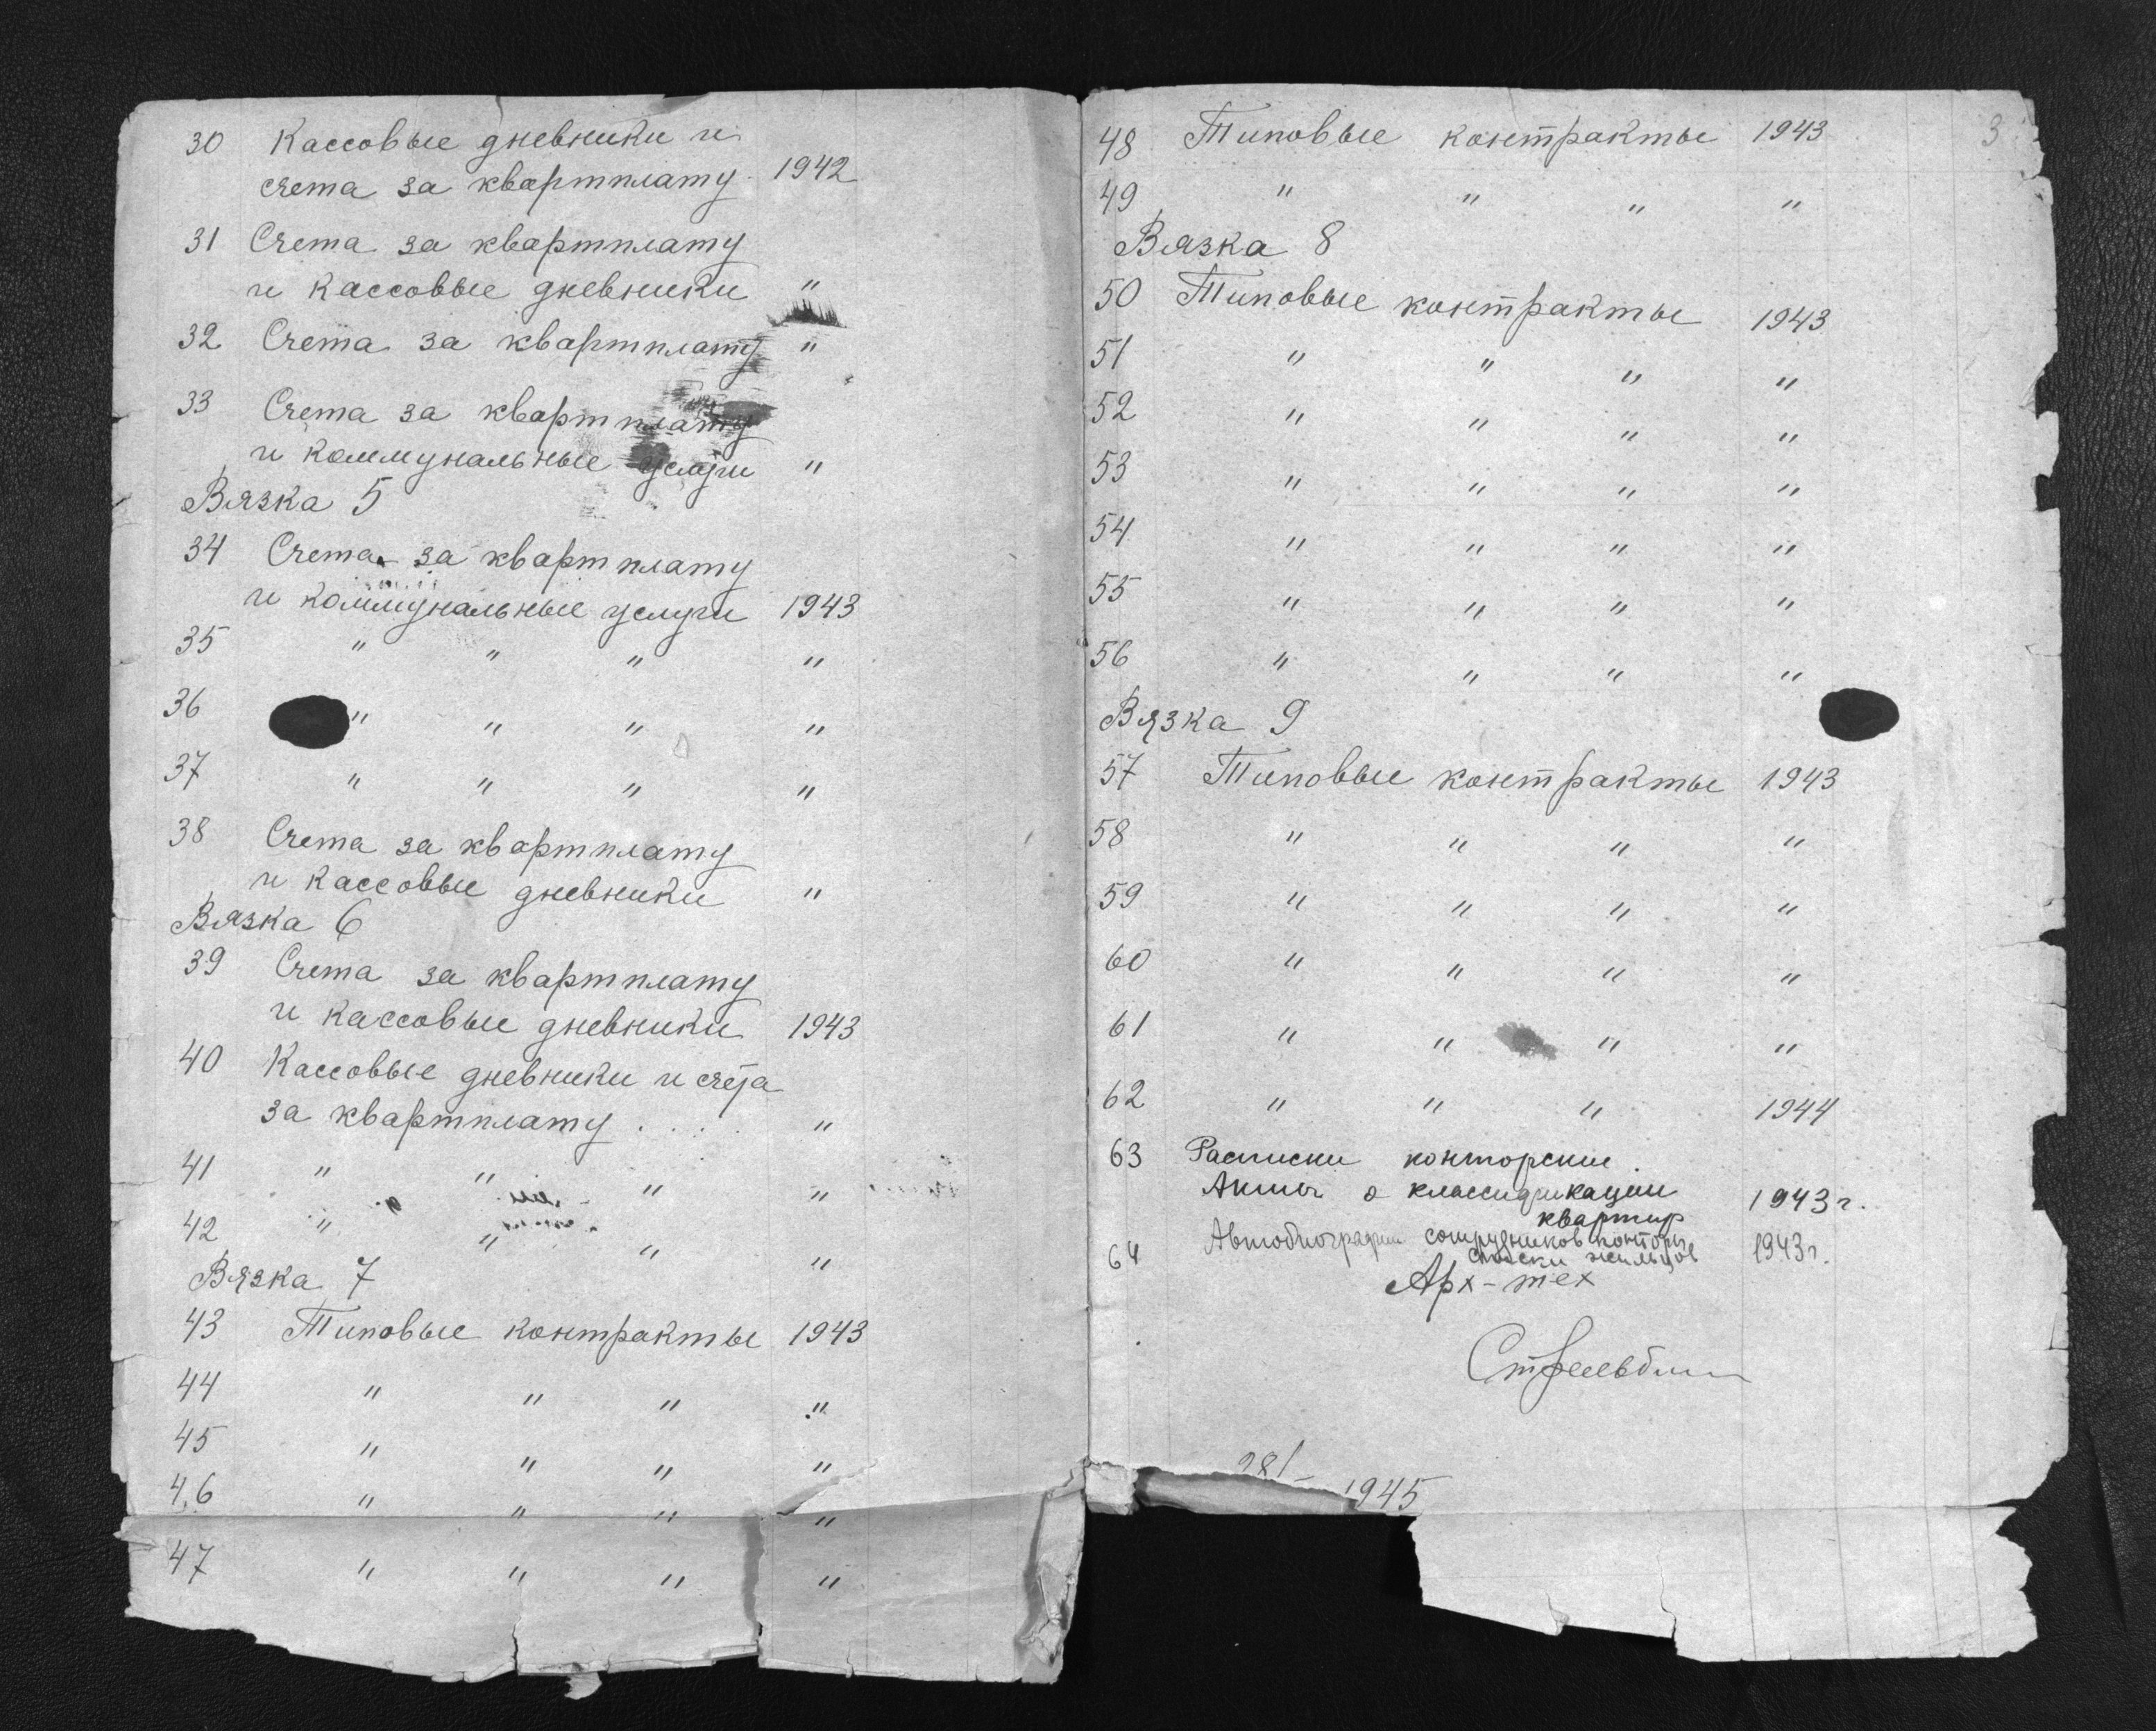 30 Кассовые дневники и
счета за квартплату. 1942
31 Счета за квартплату
и кассовые дневники "
32 Счета за квартплату "
33 Счета за квартплату
и коммунальные услуги "
Вязка 5
34 Счета за квартплату
и коммунальные услуги 1943
35 " " " "
36 " " " "
37 " " " "
38 Счета за квартплату
и кассовые дневники "
Вязка 6
39 Счета за квартплату
и кассовые дневники 1943
40 Кассовые дневники и счета
за квартплату . . . . "
41 " " " "
42 " " " "
Вязка 7
43 Типовые контракты 1943
44 " " " "
45 " " " "
46 " " " "
47 " " " "
3
48 Типовые контракты 1943
49 " " " "
Вязка 8
50 Типовые контракты 1943
51 " " " "
52 " " " "
53 " " " "
54 " " " "
55 " " " "
56 " " " "
Вязка 9
57 Типовые контракты 1943
58 " " " "
59 " " " "
60 " " " "
61 " " " "
62 " " " 1944
63 Расписки конторские.
Акты о классификации 1943 г.
квартир
64 Автобиографии сотрудников конторы 1943 г.
списки жильцов
Арх-тех
1945